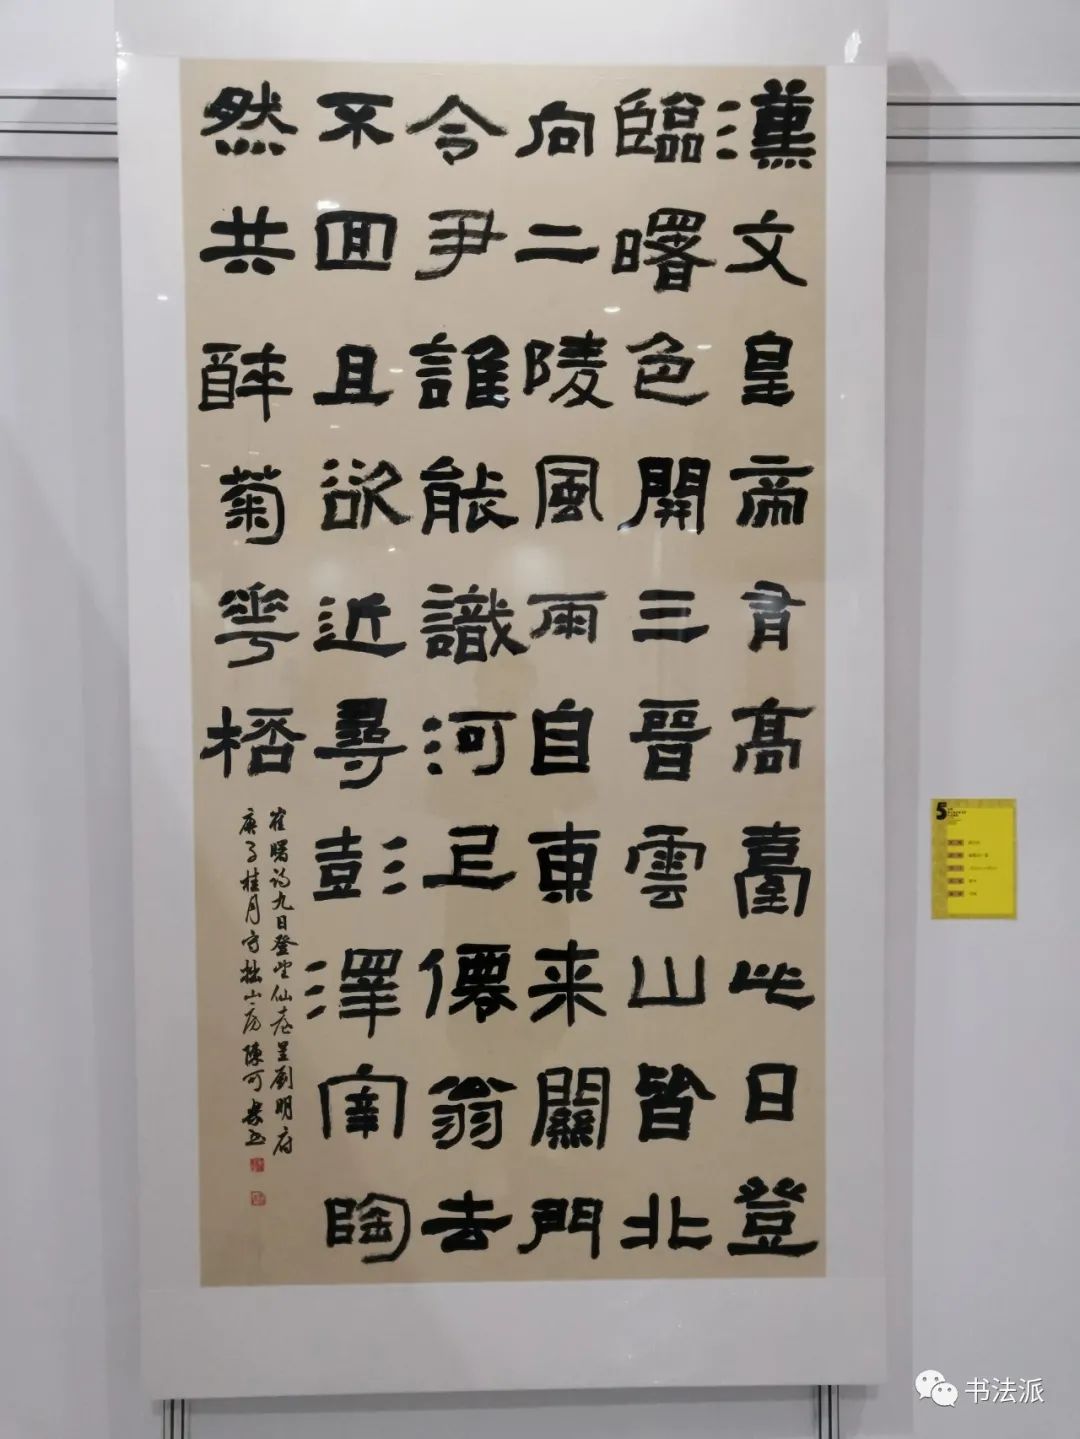 漢文皇帝有高臺此日登
臨曙色開三晉雲山皆北
向二陵風雨自東来關門
令尹誰能識河上僊翁去
不回且欲近尋彭澤宰陶
然共醉菊華桮
崔曙詩九日登望仙臺呈劉明府
庚子桂月守拙山房陳可
5
书法派